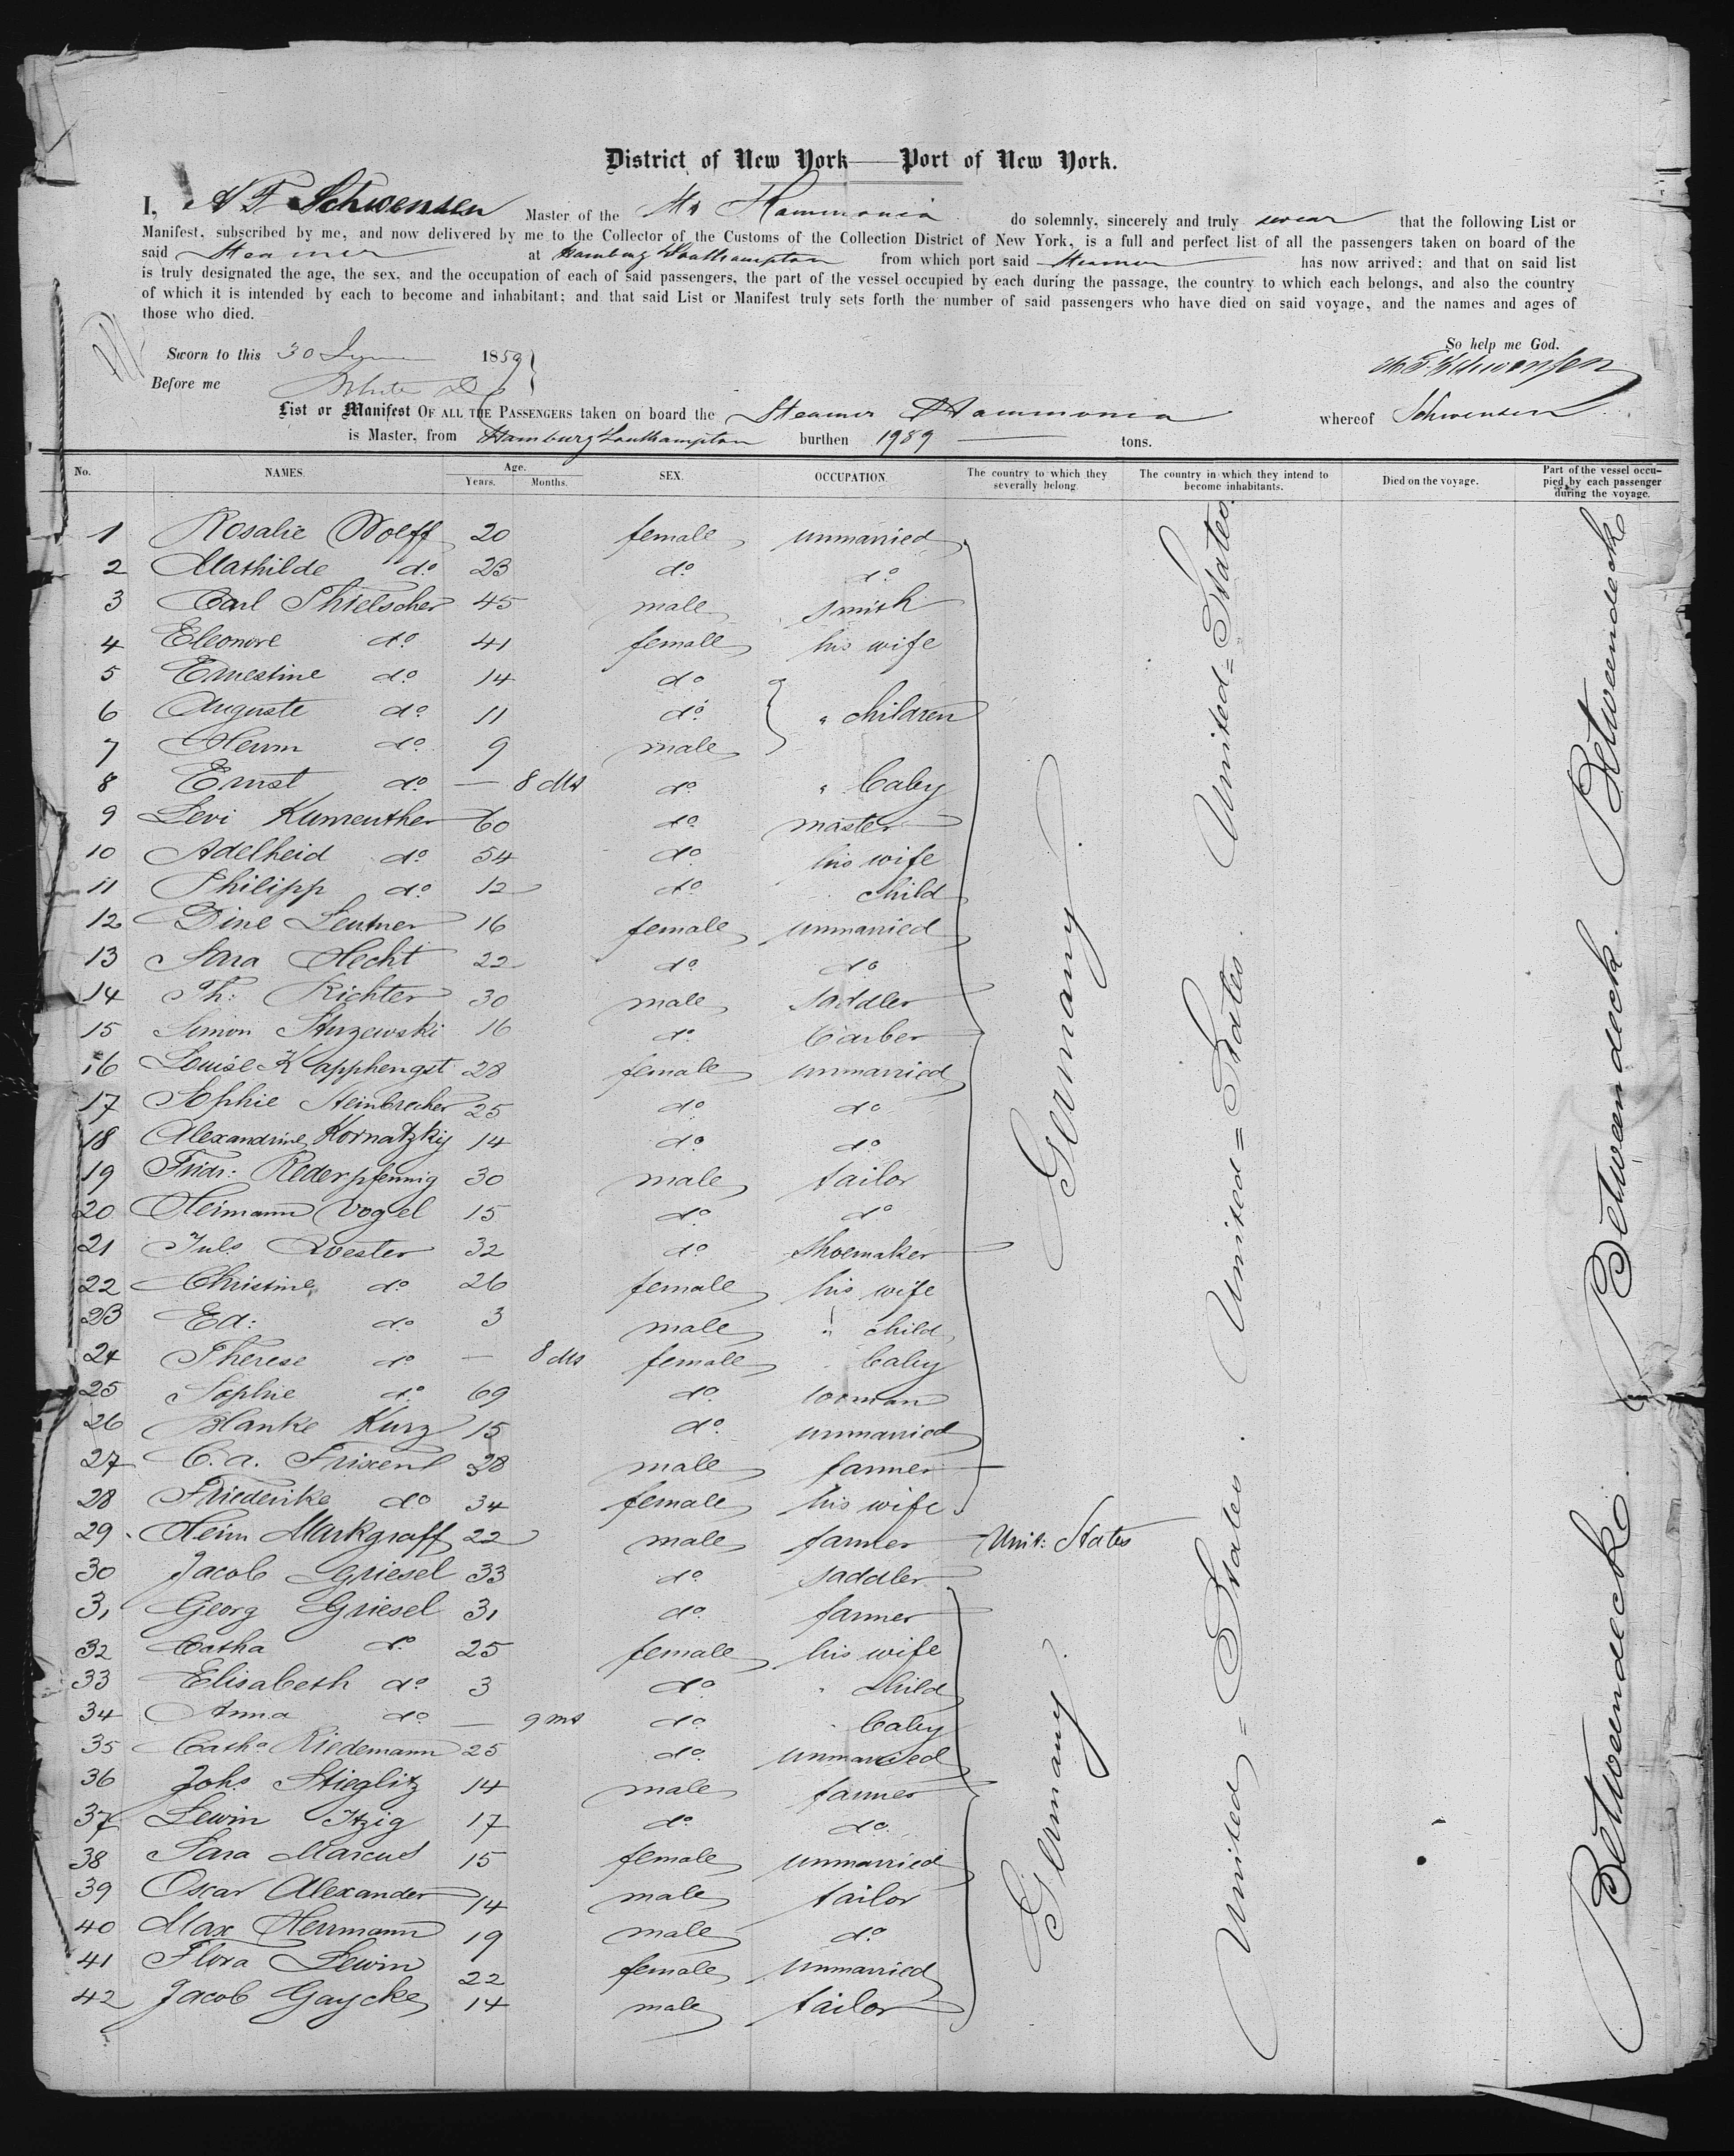 District of New York — Port of New York.
I, H F Schwensen Master of the Str Hammonia do solemnly, sincerely and truly swear that the following List or
Manifest, subscribed by me, and now delivered by me to the Collector of the Customs of the Collection District of New York, is a full and perfect list of all the passengers taken on board of the
said Steamer at Hamburg & Southampton from which port said Steamer has now arrived; and that on said list
is truly designated the age, the sex, and the occupation of each of said passengers, the part of the vessel occupied by each during the passage, the country to which each belongs, and also the country
of which it is intended by each to become and inhabitant; and that said List or Manifest truly sets forth the number of said passengers who have died on said voyage, and the names and ages of
those who died.
So help me God.
Sworn to this 30 1859
H. F. Schwensen
Before me White
List or Manifest OF ALL THE PASSENGERS taken on board the Steamer Hammonia whereof Schwensen
is Master, from Hamburg & Southampton burthen 1989 tons.
No. NAMES. Age. Years. Months. SEX. OCCUPATION. The country to which they severally belong. The country in which they intend to become inhabitants. Died on the voyage. Part of the vessel occupied by each passenger during the voyage.
1 Rosalie Wolff 20 female unmarried
2 Mathilde do 23 do do
3 Carl Thielscher 45 male smith
4 Eleonore do 41 female his wife
5 Ernestine do 14 do
6 Auguste do 11 do " children
7 Herm do 9 male
8 Ernst do — 8 Mts do " baby
9 Levi Kumenther 60 do master
10 Adelheid do 54 do his wife
11 Philipp do 12 do child
12 Dine Leutner 16 female unmarried
13 Sara Hecht 22 do do
14 Th: Richter 30 male saddler
15 Simon Sturzewski 16 do barber
16 Louise Kapphengst 28 female unmarried
17 Sophie Steinbrecher 25 do do
18 Alexandrine Kornatzky 14 do do
19 Friedr: Rederpfennig 30 male tailor
20 Heimann Vogel 15 do do
21 Juls Qvester 32 do Shoemaker
22 Christine do 26 female his wife
23 Ed: do 3 male " child
24 Therese do — 8 Mts female baby
25 Sophie do 69 do woman
26 Blanke Kurz 15 do unmarried
27 C. a. Frixen 38 male farmer
28 Friederike do 34 female his wife
29 Heinr Markgraff 22 male farmer Unit: States
30 Jacob Griesel 33 do saddler
31 Georg Griesel 31 do farmer
32 Catha do 25 female his wife
33 Elisabeth do 3 do " child
34 Anna do — 9 mts do " baby
35 Catha Riedemann 25 do unmarried
36 Johs Stieglitz 14 male farmer
37 Lewin Itzig 17 do do
38 Sara Marcus 15 female unmarried
39 Oscar Alexander 14 male tailor
40 Max Herrmann 19 male do
41 Flora Lewin 22 female unmarried
42 Jacob Gaycke 14 male tailor
Germany.
Germany.
United = States
United = States
United = States
Betweendeck
Betweendeck
Betweendeck